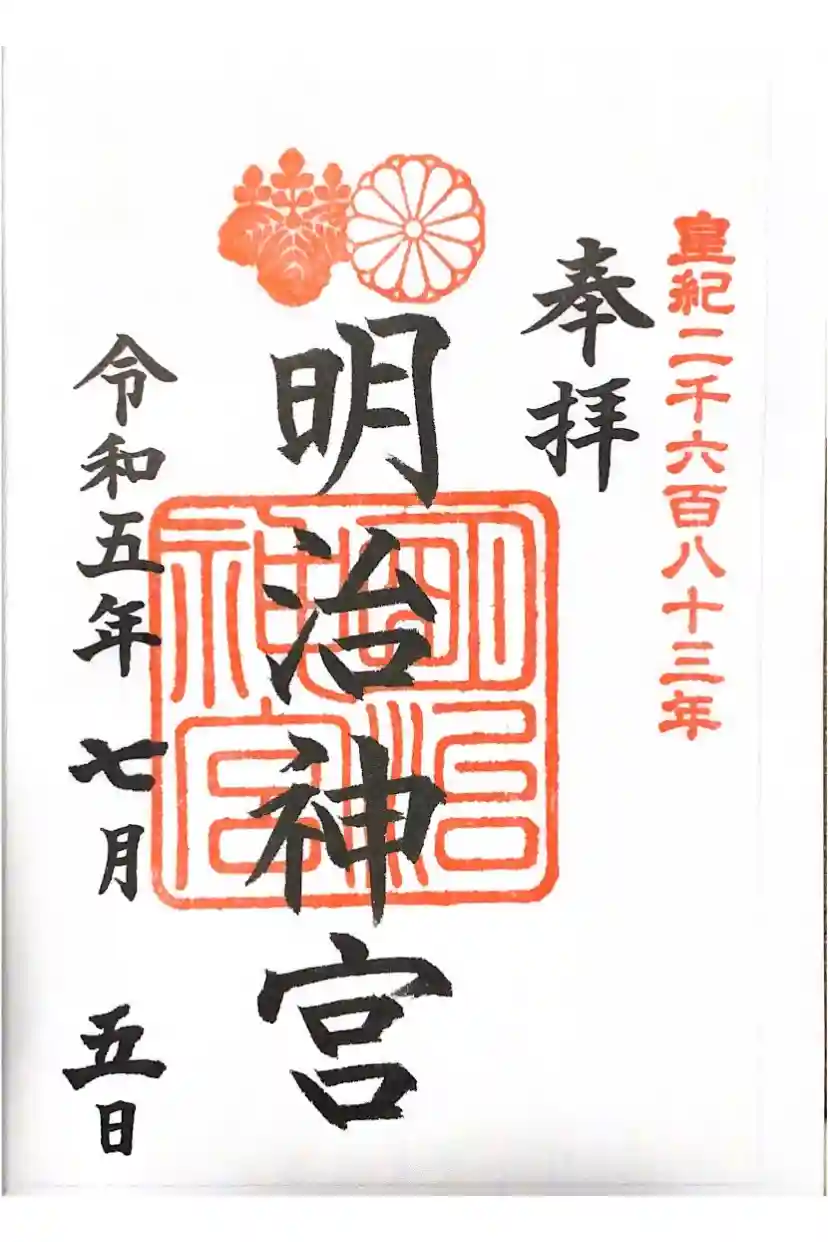 皇紀二千六百八十三年
奉拝
明治神宮
明治神宮
令和五年七月五日